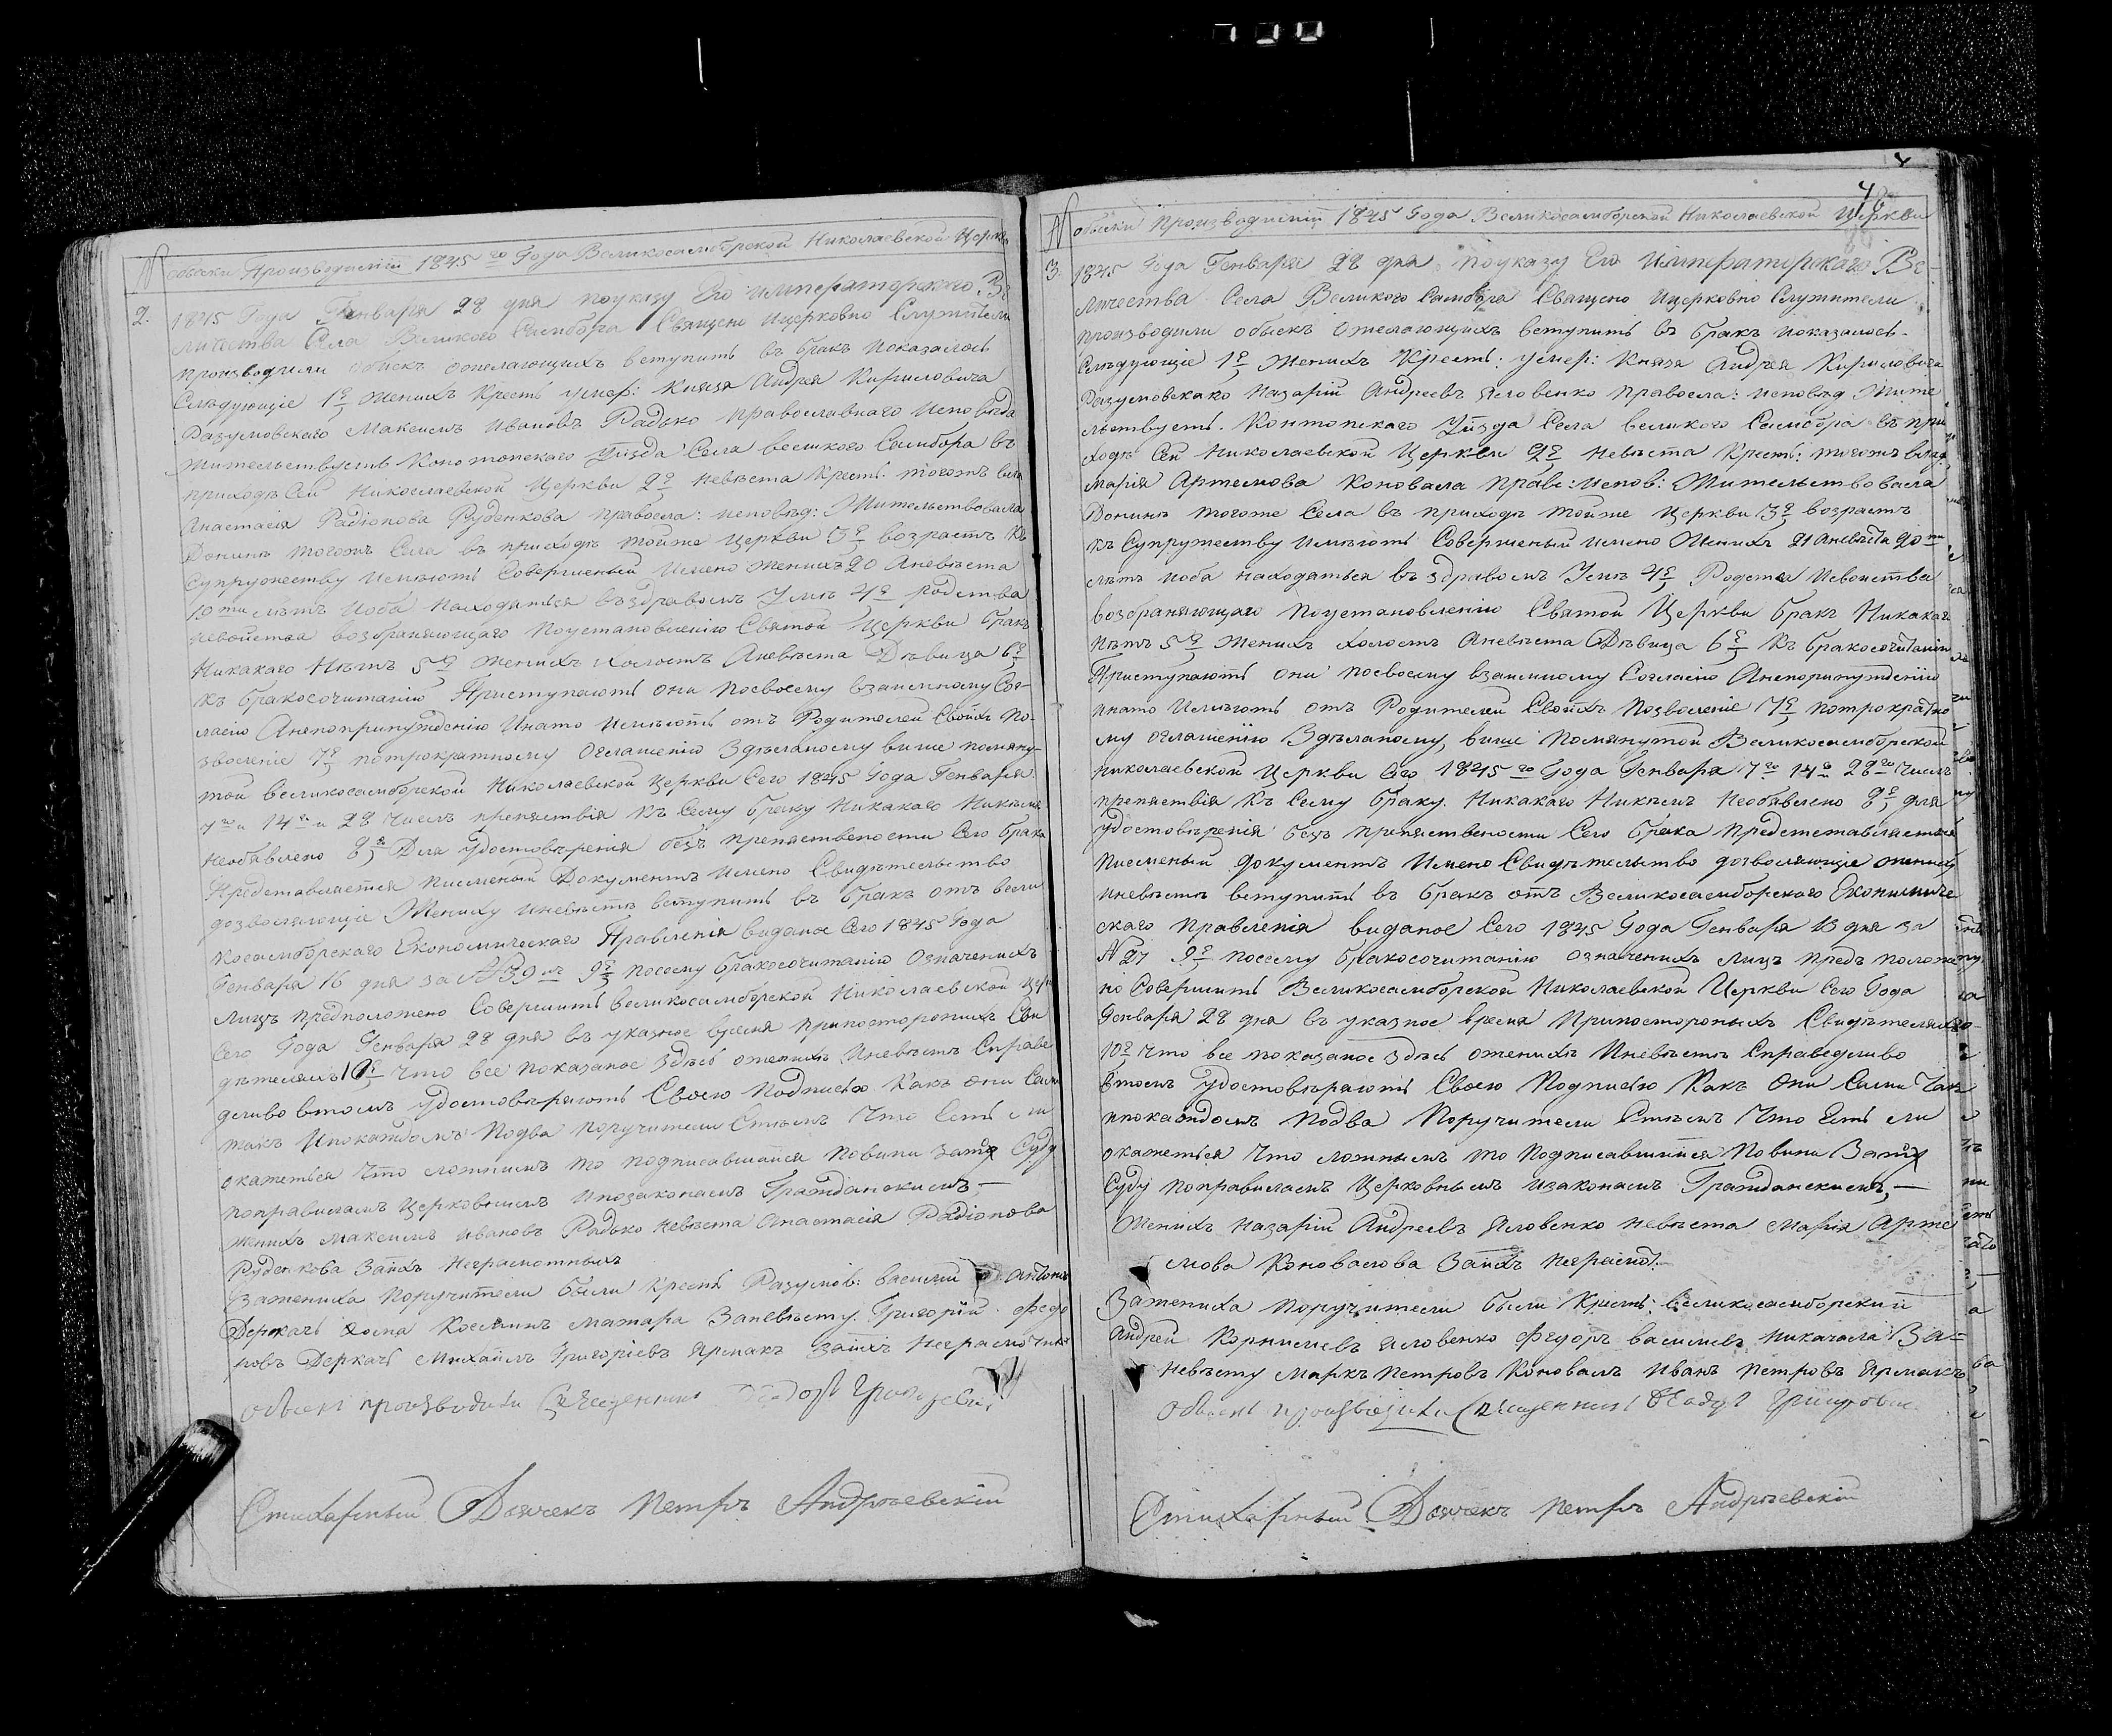 N обыски Производиміи 1845 го Года Великосамборской Николаевской Церкви
2. 1845 Года Генваря 28 дня поуказу Его императорскаго Ве
личества Села Великого Самбора Священо ицерковно Служители
производили обыскъ ожелающихъ вступить въ бракъ показалось
Слѣдующіе 1е Женихъ Крестъ умер: Князя Андрея Кириловича
Разумовского Максимъ Ивановъ Радько православнаго исповѣда
жительствуетъ Конотопскаго Уѣзда Села великого Самбора въ
приходѣ Сей Николаевской Церкви 2е невѣста Крест. тогожъ вла
Анастасія Радіонова Руденкова правосла: исповѣд: Жительствовала
Донинѣ тогожъ Села въ приходѣ тойже Церкви 3е возрастъ Къ
Супружеству имѣютъ Совершеный имено женихъ 20 Аневѣста
19ти лѣтъ иоба находяться въздравомъ Умѣ 4е родства
исвойства возбраняющаго поустановленію Святой Церкви бракъ
Никакаго Нѣтъ 5е женихъ холостъ Аневѣста Дѣвица 6е
къ бракосочитанію Приступаютъ они посвоему взаимному Сог-
ласію Анепопринужденію Инато имѣютъ отъ Родителей Своихъ по-
зволеніе 7е потрократному Оглашенію Здѣланому више помяну-
той великосамборской Николаевской церкви Сего 1845 Года Генваря
7го и 14го и 28 Числъ препяствія къ Сему браку Никакаго Никѣмъ
необявлено 8е Для удостовѣренія безъ препяствености Сего брака
Представляется писменый Документъ имено Свидѣтельство
дозволяющіе Жениху иневѣстѣ вступить въ бракъ отъ вели
косамборскаго Економическаго Правленія виданое Сего 1845 Года
Генваря 16 дня за N 39 мъ 9е посему бракосочитанію Означенихъ
лицъ предположено Совершить великосамборской Николаевской цер
Сего Года Генваря 28 дня въ указное время припостороннихъ Сви
дѣтеляхъ 10е что все показаное здѣсь оженихѣ Иневѣстѣ Справе
дливо втомъ удостовѣряютъ Своею Подписью Какъ они Сами
такъ Ипокаждомъ Подва поручители Стѣмъ Что Есть ли
окажеться что ложнимъ то подписавшіися повини затѣ Суду
поправиламъ церковнимъ ипозаконамъ Гражданскимъ –
женихъ Максимъ Ивановъ Радько невѣста Анастасія Радіонова
Руденкова Заихъ Неграмотныхъ
Зажениха поручители были Крестъ Разумов: василій Антоновъ
Деркачъ Хома Косминъ Матара Заневѣсту Григорій Федо
повъ Деркачъ Михаилъ Григоріевъ Ярмакъ Заихъ Неграмотнихъ
Обыскъ производили Священникъ Григоровичъ
Стихарный Дьячекъ Петръ Андріевскій
4
N обыски Производиміи 1845 Года Великосамборской Николаевской Церкви
3. 1845 Года Генваря 28 дня поуказу Его Императорскаго Ве-
личества Села Великого Самбора Священо Ицерковно Служители
производили обыскъ Ожелающихъ вступить въ бракъ показалось
Слѣдующіе 1е Женихъ Крестъ: умер: Князя Андрея Кириловича
Разумовскаго Назарій Андреевъ Яловенко правосла: исповѣд Жите
льствуетъ Контопскаго Уѣзда Села великого Самбора въ при
ходѣ Сей Николаевской Церкви 2е Невѣста Крестъ: тогожъ влад
Марія Артемова Коновала правс: испов: Жительствовала
Донинѣ тогоже Села въ приходѣ тойже церкви 3е возрастъ
къ Супружеству имѣютъ Совершеный имено Женихъ 21 Аневѣста 20ти
лѣтъ иоба находяться въздравомъ Умѣ 4е Родства Исвойства
возбраняющаго Поустановленію Святой Церкви бракъ Никакаго
Нѣтъ 5е Женихъ холостъ Аневѣста Дѣвица 6е Къ бракосочитанію
Приступаютъ они посвоему взаимному Согласію Анепопринужденію
инато имѣютъ отъ Родителей Своихъ позволеніе 7е потрократно
му оглашенію Здѣланому више Помянутой Великосамборской
николаевской Церкви Сего 1845 го Года Генваря 7го 14го 28го Числъ
препяствія Къ Сему браку Никакаго Никѣмъ Необявлено 8е для
удостовѣренія безъ препяствености Сего брака Представляеться
писменый документъ Имено Свидѣтельство дозволяющіе жениху
иневѣстѣ вступить въ бракъ отъ Великосамборскаго Економиче
скаго правленія виданое Сего 1845 Года Генваря 13 дня за
N 27 9е посему бракосочитанію означенихъ лицъ предъ положе
но Совершить Великосамборской Николаевской Церкви Сего Года
Генваря 28 дня въ указное время Припосторонихъ Свидѣтеляхъ
10е Что все показаное здѣсь оженихѣ Иневѣстѣ Справедливо
втомъ удостовѣряютъ Своею Подписью Какъ Они Сами такъ
ипокаждомъ Подва Поручители Стѣмъ Что Есть ли
окажеться Что ложнымъ то Подписавшіися Повини Затѣ
Суду поправиламъ Церковнымъ изаконамъ Гражданскимъ –
Женихъ Назарій Андреевъ Яловенко невѣста Марія Арте
мова Коновалова Заихъ неграмот:
Зажениха поручители были Крестъ: великосамборскій
Андрей Корнилиевъ Яловенко Федоръ василиевъ Никачала За=
невѣсту Маркъ Петровъ Коновалъ Иванъ Петровъ Ярмакъ
Обыскъ производили Священникъ Григоровичъ
Стихарный Дьячекъ Петръ Андріевскій